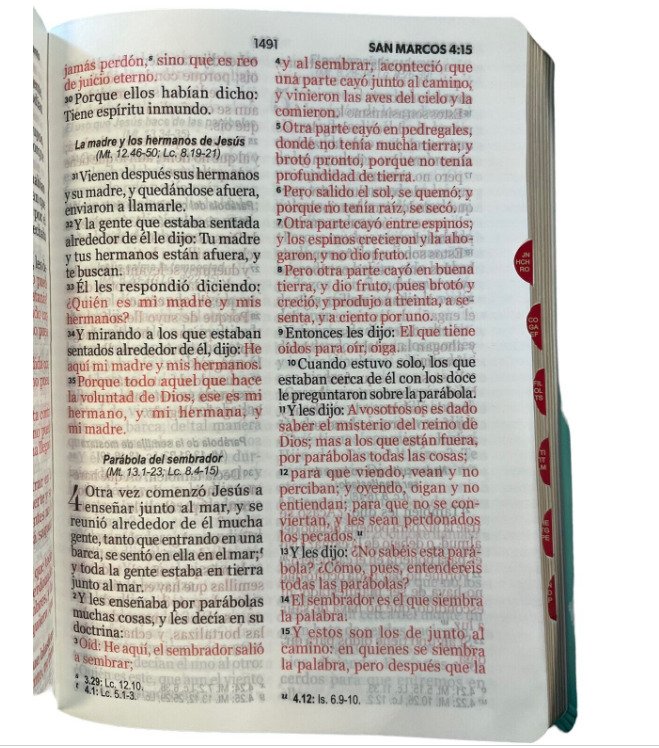 1491
SAN MARCOS 4:15
jamás perdón,ˢ sino que es reo
de juicio eterno.
30 Porque ellos habían dicho:
Tiene espíritu inmundo.
La madre y los hermanos de Jesús
(Mt. 12.46-50; Lc. 8.19-21)
31 Vienen después sus hermanos
y su madre, y quedándose afuera,
enviaron a llamarle.
32 Y la gente que estaba sentada
alrededor de él le dijo: Tu madre
y tus hermanos están afuera, y
te buscan.
33 Él les respondió diciendo:
¿Quién es mi madre y mis
hermanos?
34 Y mirando a los que estaban
sentados alrededor de él, dijo: He
aquí mi madre y mis hermanos.
35 Porque todo aquel que hace
la voluntad de Dios, ese es mi
hermano, y mi hermana, y
mi madre.
Parábola del sembrador
(Mt. 13.1-23; Lc. 8.4-15)
4 Otra vez comenzó Jesús a
enseñar junto al mar, y se
reunió alrededor de él mucha
gente, tanto que entrando en una
barca, se sentó en ella en el mar;ᵗ
y toda la gente estaba en tierra
junto al mar.
2 Y les enseñaba por parábolas
muchas cosas, y les decía en su
doctrina:
3 Oíd: He aquí, el sembrador salió
a sembrar;
ˢ 3.29: Lc. 12.10.
ᵗ 4.1: Lc. 5.1-3.
4 y al sembrar, aconteció que
una parte cayó junto al camino,
y vinieron las aves del cielo y la
comieron.
5 Otra parte cayó en pedregales,
donde no tenía mucha tierra; y
brotó pronto, porque no tenía
profundidad de tierra.
6 Pero salido el sol, se quemó; y
porque no tenía raíz, se secó.
7 Otra parte cayó entre espinos;
y los espinos crecieron y la aho-
garon, y no dio fruto.
8 Pero otra parte cayó en buena
tierra, y dio fruto, pues brotó y
creció, y produjo a treinta, a se-
senta, y a ciento por uno.
9 Entonces les dijo: El que tiene
oídos para oír, oiga.
10 Cuando estuvo solo, los que
estaban cerca de él con los doce
le preguntaron sobre la parábola.
11 Y les dijo: A vosotros os es dado
saber el misterio del reino de
Dios; mas a los que están fuera,
por parábolas todas las cosas;
12 para que viendo, vean y no
perciban; y oyendo, oigan y no
entiendan; para que no se con-
viertan, y les sean perdonados
los pecados.ᵘ
13 Y les dijo: ¿No sabéis esta pará-
bola? ¿Cómo, pues, entenderéis
todas las parábolas?
14 El sembrador es el que siembra
la palabra.
15 Y estos son los de junto al
camino: en quienes se siembra
la palabra, pero después que la
ᵘ 4.12: Is. 6.9-10.
JN
HCH
RO
CO
GA
EF
FIL
COL
TS
TI
TIT